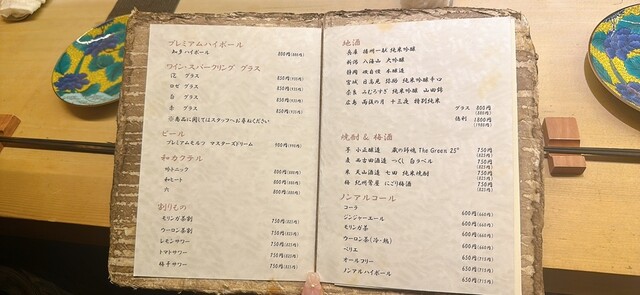 プレミアムハイボール
知多ハイボール 800円(880円)
ワイン・スパークリング グラス
泡 グラス 850円(935円)
ロゼ グラス 850円(935円)
白 グラス 850円(935円)
赤 グラス 850円(935円)
※商品に関してはスタッフへお尋ねください
ビール
プレミアムモルツ マスターズドリーム 900円(990円)
和カクテル
800円(880円)
和ヒート 800円(880円)
六 800円(880円)
割りもの
モリンガ茶割 750円(825円)
ウーロン茶割 750円(825円)
レモンサワー 750円(825円)
トマトサワー 750円(825円)
梅干サワー 750円(825円)
地酒
兵庫 播州一献 純米吟醸
新潟 八海山 大吟醸
静岡 磯自慢 本醸造
宮城 日高見 弥助 純米吟醸辛口
奈良 みむろすぎ 純米吟醸 山田錦
広島 雨後の月 十三夜 特別純米
グラス 800円
(880円)
徳利 1800円
(1980円)
焼酎 & 梅酒
芋 小正醸造 蔵の師魂 The Green 25° 750円
(825円)
麦 西吉田酒造 つくし 白ラベル 750円
(825円)
米 天山酒造 七田 純米焼酎 750円
(825円)
梅 紀州鶯屋 にごり梅酒 750円
(825円)
ノンアルコール
コーラ 600円(660円)
ジンジャーエール 600円(660円)
モリンガ茶 600円(660円)
ウーロン茶(冷・温) 600円(660円)
ペリエ 600円(660円)
オールフリー 650円(715円)
ノンアルハイボール 650円(715円)